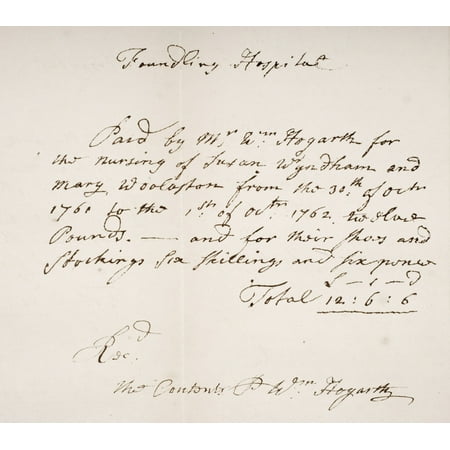 Foundling Hospital
Paid by Mr. Wm. Hogarth for
the nursing of Susan Wyndham and
Mary Woolaston from the 30th of Octr
1760 to the 1st of Octr. 1762. twelve
Pounds. — and for their Shoes and
Stockings Six Shillings and six pence
£ — s — d
Total 12 : 6 : 6
Recd.
the Contents P Wm. Hogarth